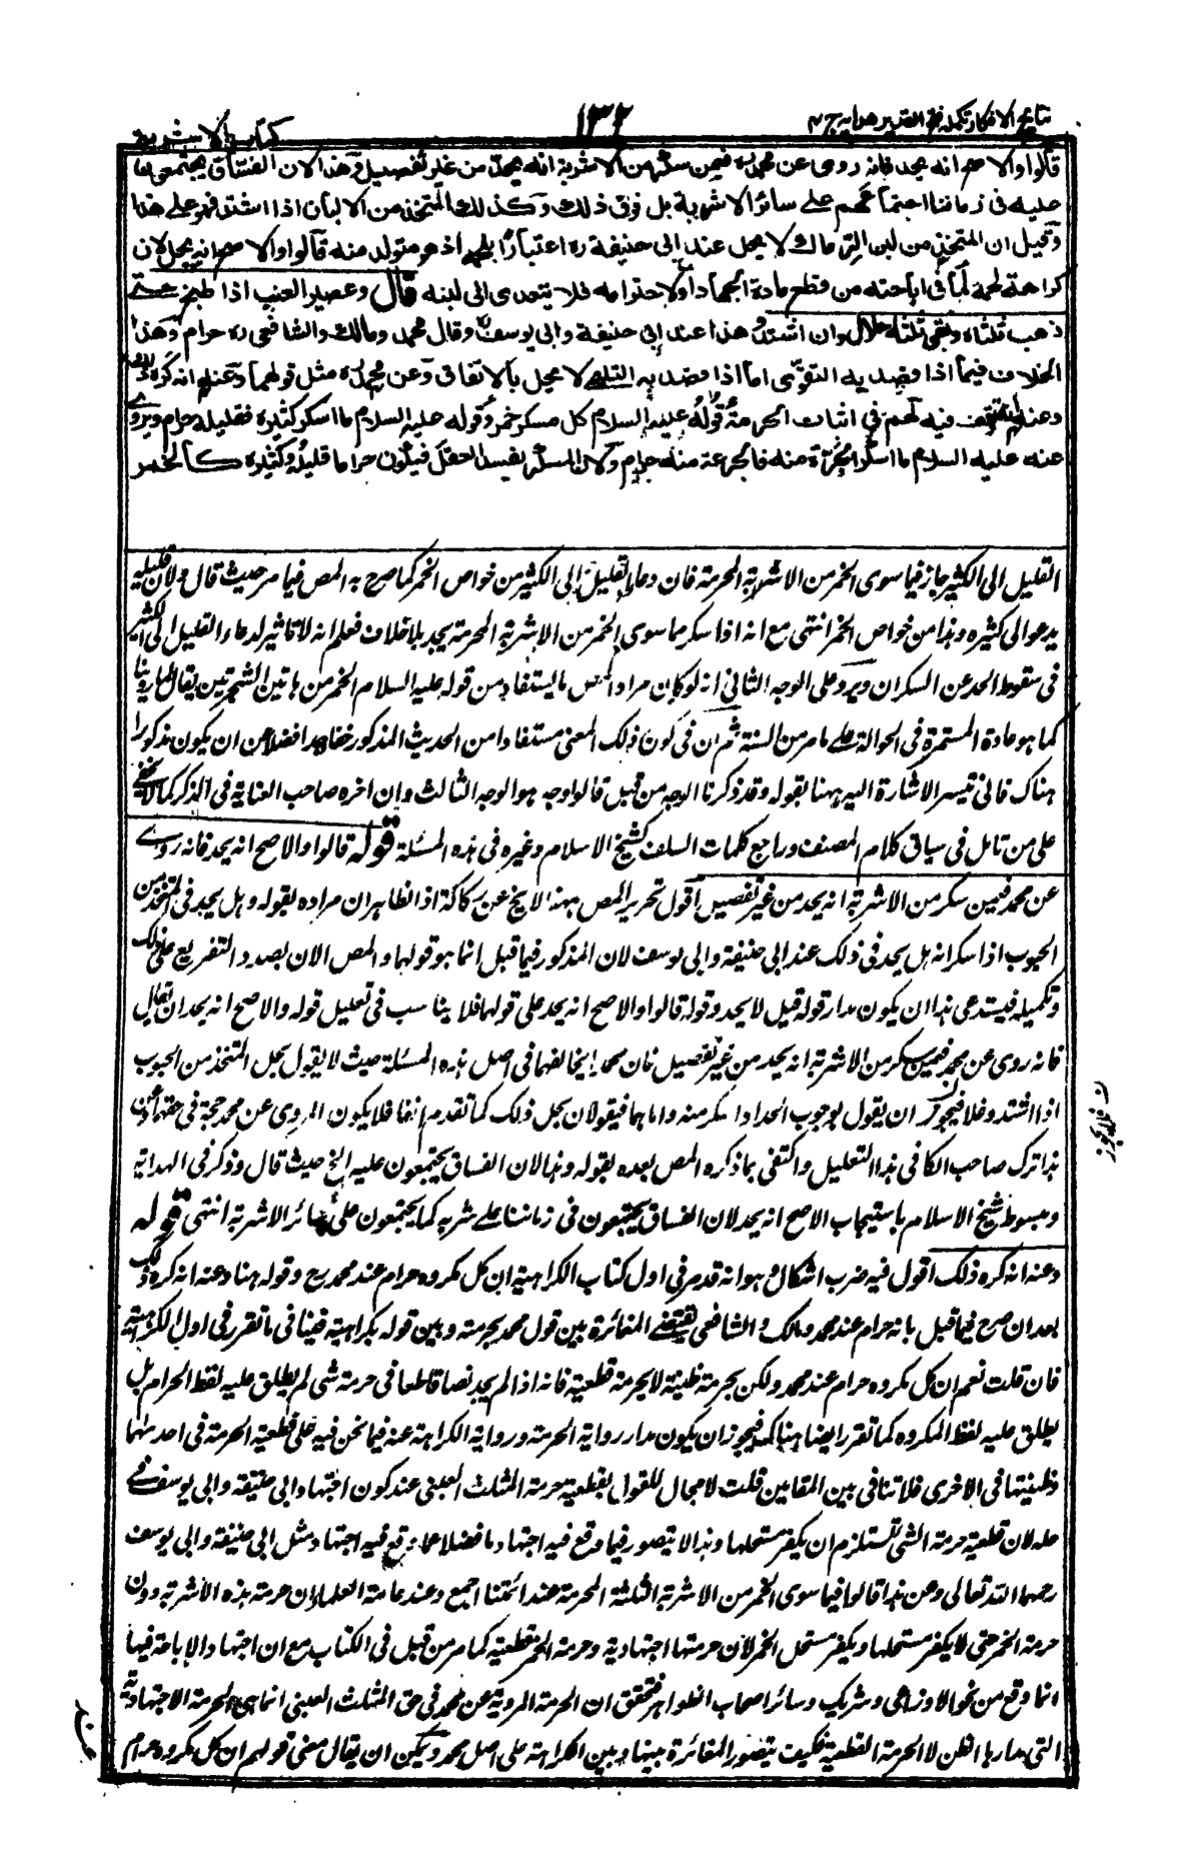 نتائج الافكار تكملة فتح القدير هدايه ج ٤
١٣٢
كتاب الاشربة
قالوا والاصح انه يحد فانه روى عن محمد ره فيمن سكر من الاشربة انه يحد من غير تفصيل وهذا لان الفساق يجتمعون
عليه فى زماننا اجتماعهم على سائر الاشربة بل فوق ذلك وكذلك المتخذ من الالبان اذا اشتد فهو على هذا
وقيل ان المتخذ من لبن الرماك لا يحل عند ابى حنيفة ره اعتبارا بلحمه اذ هو متولد منه قالوا والاصح انه يحل لان
كراهة لحمه لما فى اباحته من قطع مادة الجهاد او لاحترامه فلا يتعدى الى لبنه قال وعصير العنب اذا طبخ حتے
ذهب ثلثاه وبقى ثلثه حلال وان اشتد وهذا عند ابى حنيفة وابى يوسف وقال محمد ومالك والشافعى ره حرام وهذا
الخلاف فيما اذا قصد به التقوى اما اذا قصد به التلهى لا يحل بالاتفاق وعن محمد ره مثل قولهما وعنه انه كره ذلك
وعنه انه توقف فيه لهم فى اثبات الحرمة قوله عليه السلام كل مسكر خمر وقوله عليه السلام ما اسكر كثيره فقليله حرام ويروے
عنه عليه السلام ما اسكر الجرة منه فالجرعة منه حرام ولان المسكر يفسد العقل فيكون حراما قليله وكثيره كالخمر
القليل الى الكثير جاز فيما سوى الخمر من الاشربة المحرمة فان دعاء القليل الى الكثير من خواص الخمر كما صرح به المص فيما مر حيث قال ولان قليله
يدعو الى كثيره وهذا من خواص الخمر انتهى مع انه اذا سكر مما سوى الخمر من الاشربة المحرمة يحد بلا خلاف فعلم انه لا تاثير لدعاء القليل الى الكثير
فى سقوط الحد عن السكران ويرد على الوجه الثانى انه لو كان مراد المص ما يستفاد من قوله عليه السلام الخمر من هاتين الشجرتين يقال لما روينا
كما هو عادة المستمرة فى الحوالة على ما مر من السنة ثم ان فى كون ذلك المعنى مستفادا من الحديث المذكور خفاء جدا فضلا عن ان يكون مذكورا
هناك فانى تيسر الاشارة اليه ههنا بقوله وقد ذكرنا الوجه من قبل قالوا وجه هو الوجه الثالث وان اخره صاحب العناية فى الذكر كما لا يخفے
على من تامل فى سياق كلام المصنف وراجع كلمات السلف كشيخ الاسلام وغيره فى هذه المسئلة قوله قالوا والاصح انه يحد فانه روے
عن محمد فيمن سكر من الاشربة انه يحد من غير تفصيل اقول تحرير المص ههنا لا يخ عن ركاكة اذ الظاهر ان مراده بقوله وهل يحد فى المتخذ من
الحبوب اذا سكر انه هل يحد فى ذلك عند ابى حنيفة وابى يوسف لان المذكور فيما قبل انما هو قولهما والمص الان بصدد التفريع على ذلك
وتكميله فيستدعى هذا ان يكون مدار قوله قيل لا يحد وقوله قالوا والاصح انه يحد على قولهما فلا يناسب فى تعليل قوله والاصح انه يحد ان يقال
فانه روى عن محمد فيمن سكر من الاشربة انه يحد من غير تفصيل فان محمدا يخالفهما فى اصل هذه المسئلة حيث لا يقول بحل المتخذ من الحبوب
اذا اشتد وغلا فيجوز ان يقول بوجوب الحد اذا سكر منه واما هما فيقولان بحل ذلك كما تقدم انفا فلا يكون المروى عن محمد حجة فى حقهما وعن
هذا ترك صاحب الكافى هذا التعليل واكتفى بما ذكره المص بعده بقوله وهذا لان الفساق يجتمعون عليه الخ حيث قال وذكر فى الهداية
ومبسوط شيخ الاسلام باستيجاب الاصح انه يحد لان الفساق يجتمعون فى زماننا على شربه كما يجتمعون على سائر الاشربة انتهى قوله
وعنه انه كره ذلك اقول فيه ضرب اشكال وهو انه قد مر فى اول كتاب الكراهية ان كل مكروه حرام عند محمد رح وقوله هنا وعنه انه كره ذلك
بعد ان صرح فيما قبل بانه حرام عند محمد ومالك والشافعى يقتضے المغائرة بين قول محمد بحرمته وبين قوله بكراهيته فينافى ما تقرر فى اول الكراهية
فان قلت نعم ان كل مكروه حرام عند محمد ولكن بحرمة ظنية لا بحرمة قطعية فانه اذا لم يجد نصا قاطعا فى حرمة شى لم يطلق عليه لفظ الحرام بل
يطلق عليه لفظ المكروه كما تقرر ايضا هناك فيجوز ان يكون مدار رواية الحرمة ورواية الكراهة عنه فيما نحن فيه على قطعية الحرمة فى احدهما
وظنيتها فى الاخرى فلا تنافى بين المقامين قلت لا مجال للقول بقطعية حرمة المثلث العنبى عند كون اجتهاد ابى حنيفة وابى يوسف فے
حله لان قطعية حرمة الشى تستلزم ان يكفر مستحلها وهذا لا يتصور فيما وقع فيه اجتهاد ما فضلا عما وقع فيه اجتهاد مثل ابى حنيفة وابى يوسف
رحمهما الله تعالى وعن هذا قالوا فيما سوى الخمر من الاشربة الثلثة المحرمة عند ائمتنا اجمع وعند عامة العلماء ان حرمة هذه الاشربة دون
حرمة الخمر حتى لا يكفر مستحلها ويكفر مستحل الخمر لان حرمتها اجتهادية وحرمة الخمر قطعية كما مر من قبل فى الكتاب مع ان اجتهاد الاباحة فيها
انما وقع من نحو الاوزاعى وشريك وسائر اصحاب الظواهر فتحقق ان الحرمة المروية عن محمد فى حق المثلث العنبى انما هى الحرمة الاجتهادية
التى مدارها الظن لا الحرمة القطعية فكيف يتصور المغائرة بينها وبين الكراهة على اصل محمد ويمكن ان يقال معنى قولهم ان كل مكروه حرام
ن فلا يجوز